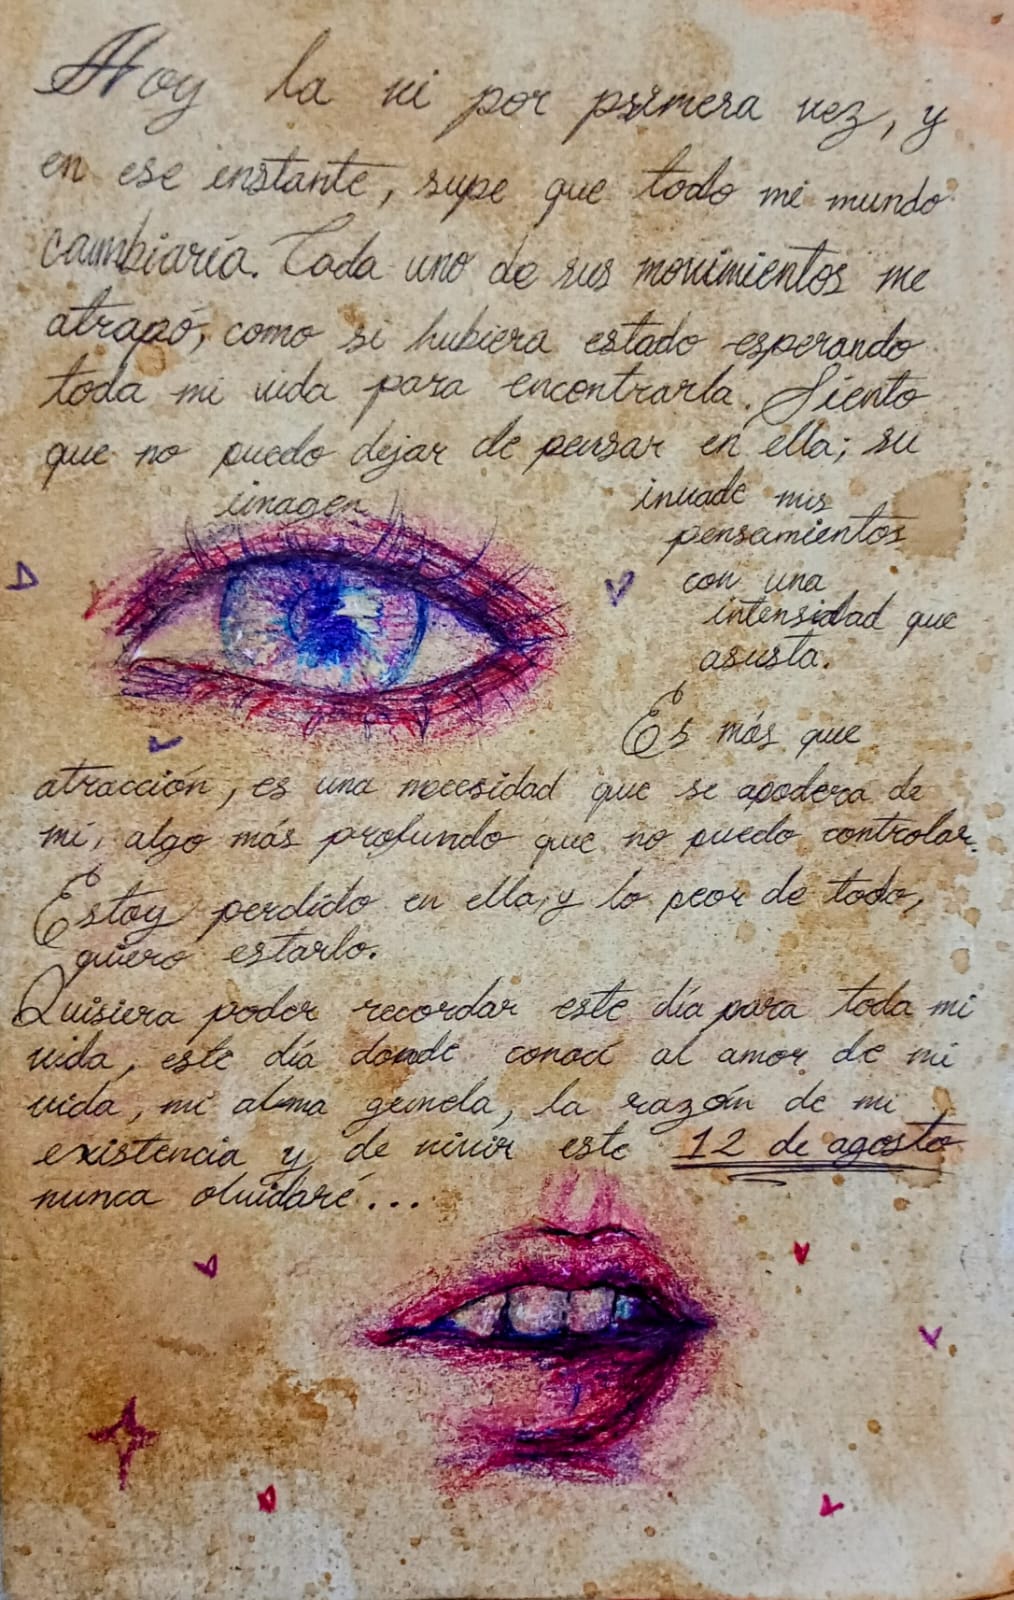 Hoy la vi por primera vez, y
en ese instante, supe que todo mi mundo
cambiaría. Cada uno de sus movimientos me
atrapó, como si hubiera estado esperando
toda mi vida para encontrarla. Siento
que no puedo dejar de pensar en ella; su
imagen invade mis
pensamientos
con una
intensidad que
asusta.
Es más que
atracción, es una necesidad que se apodera de
mí, algo más profundo que no puedo controlar.
Estoy perdido en ella, y lo peor de todo,
quiero estarlo.
Quisiera poder recordar este día para toda mi
vida, este día donde conocí al amor de mi
vida, mi alma gemela, la razón de mi
existencia y de vivir este 12 de agosto
nunca olvidaré...